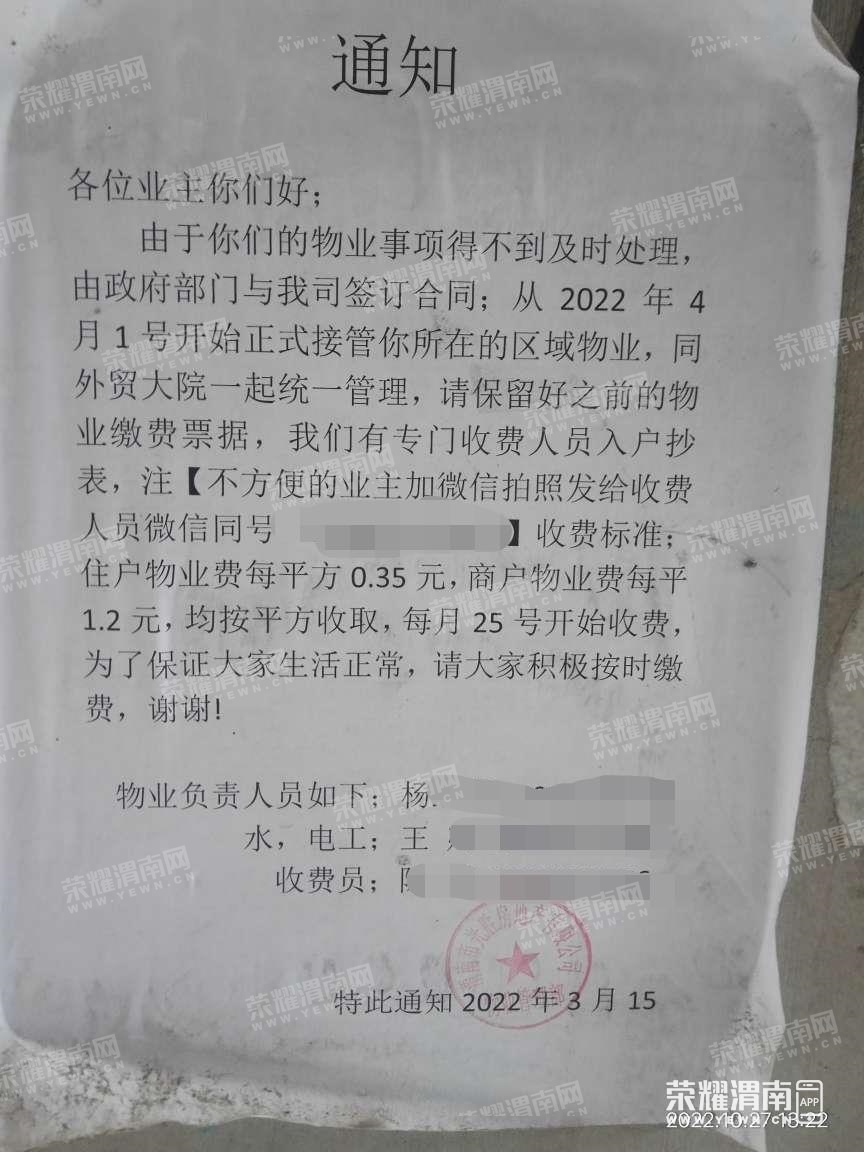 通知
各位业主你们好；
由于你们的物业事项得不到及时处理，
由政府部门与我司签订合同；从 2022 年 4
月 1 号开始正式接管你所在的区域物业，同
外贸大院一起统一管理，请保留好之前的物
业缴费票据，我们有专门收费人员入户抄
表，注【不方便的业主加微信拍照发给收费
人员微信同号 】收费标准；
住户物业费每平方 0.35 元，商户物业费每平
1.2 元，均按平方收取，每月 25 号开始收费，
为了保证大家生活正常，请大家积极按时缴
费，谢谢！
物业负责人员如下；杨
水，电工；王
收费员；
渭南市光胜房地产有限公司
特此通知 2022 年 3 月 15
荣耀渭南网
WWW.YEWN.CN
荣耀渭南 APP
2022.10.27 18:22